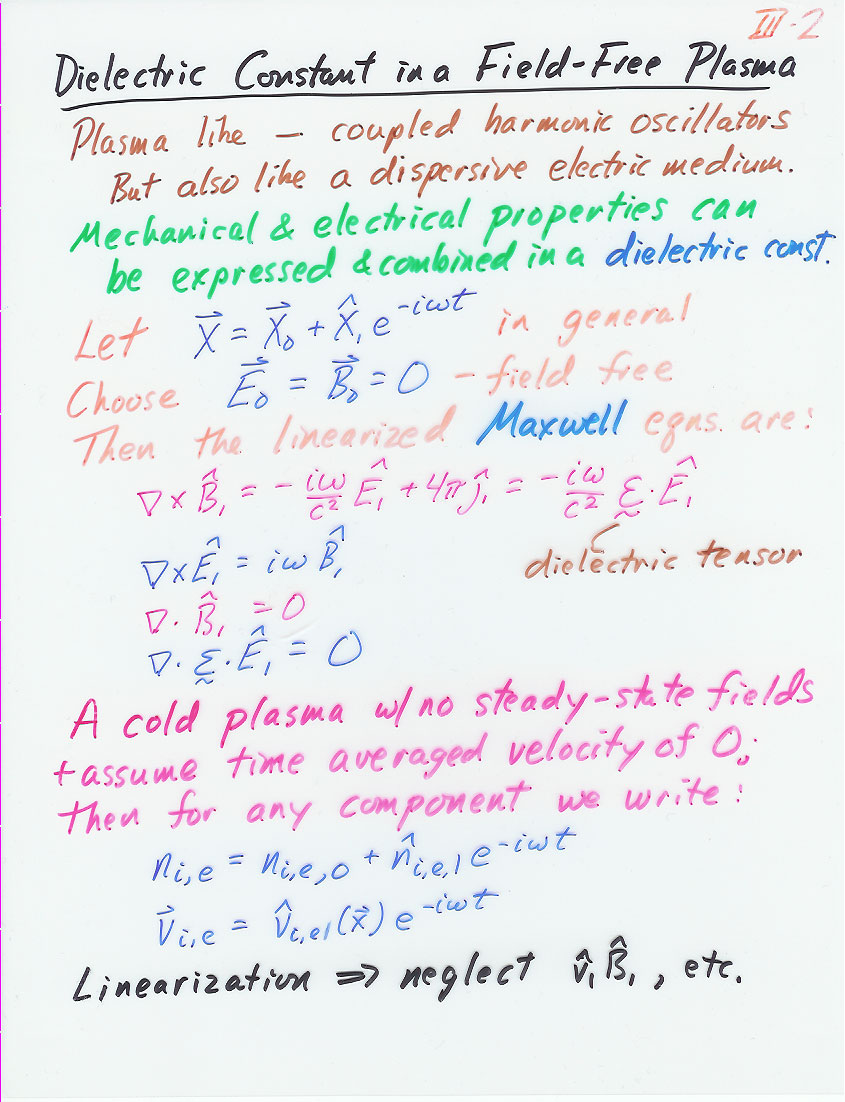 III-2
Dielectric Constant in a Field-Free Plasma
Plasma like — coupled harmonic oscillators
But also like a dispersive electric medium.
Mechanical & electrical properties can
be expressed & combined in a dielectric const.
Let X⃗ = X⃗₀ + X̂₁ e^{-iωt} in general
Choose E⃗₀ = B⃗₀ = 0 - field free
Then the linearized Maxwell eqns. are:
∇ × B̂₁ = - iω/c² Ê₁ + 4π ĵ₁ = - iω/c² ε̰ · Ê₁
dielectric tensor
∇ × Ê₁ = iω B̂₁
∇ · B̂₁ = 0
∇ · ε̰ · Ê₁ = 0
A cold plasma w/ no steady-state fields
+ assume time averaged velocity of 0;
then for any component we write:
n_{i,e} = n_{i,e,0} + n̂_{i,e,1} e^{-iωt}
v⃗_{i,e} = v̂_{i,e1}(x⃗) e^{-iωt}
Linearization ⇒ neglect v̂₁B̂₁, etc.